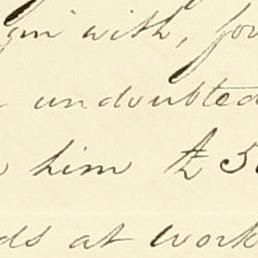 gin with, for
undoubted
him
ds at work